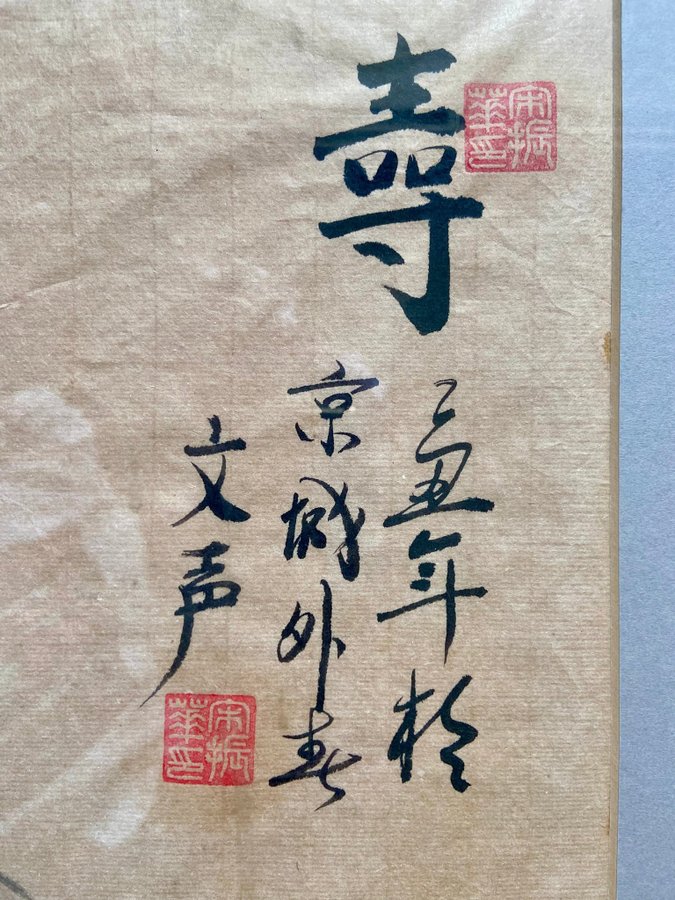 壽
宋振華印
丑年於
京城外
文声
宋振華印